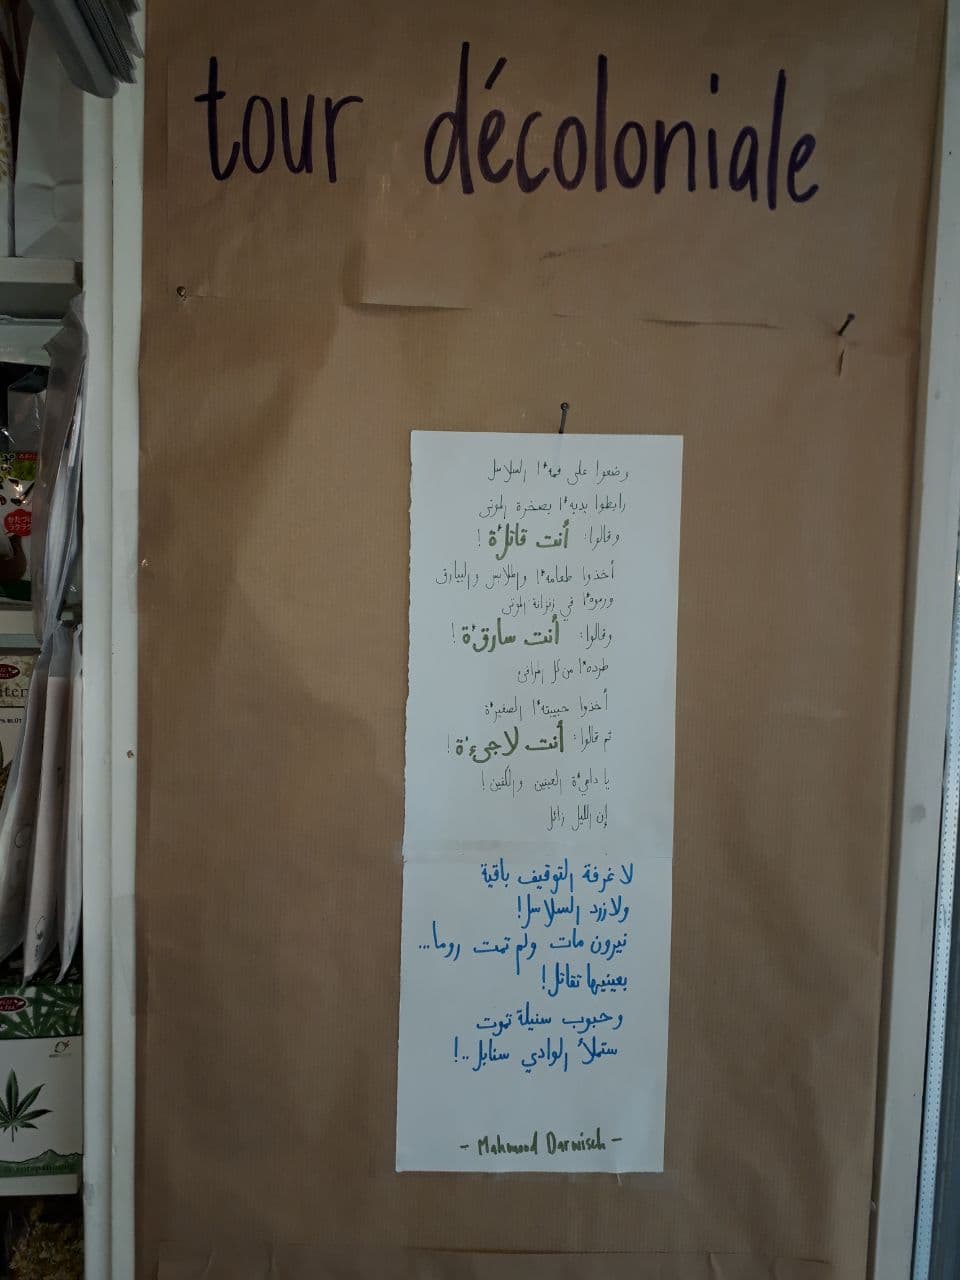 tour décoloniale
وضعوا على فمه*ا السلاسل
رابطوا يديه*ا بصخرة الموتى
وقالوا: أنت قاتل*ة!
أخذوا طعامه*ا والملابس والبيارق
ورموه*ا في زنزانة الموتى
وقالوا: أنت سارق*ة!
طرده*ا من كل المرافئ
أخذوا حبيبته*ا الصغير*ة
ثم قالوا: أنت لاجئ*ة!
يا دامي*ة العينين والكفين!
إن الليل زائل
لا غرفة التوقيف باقية
ولا زرد السلاسل!
نيرون مات ولم تمت روما...
بعينيها تقاتل!
وحبوب سنبلة تموت
ستملأ الوادي سنابل..!
- Mahmood Darwisch -